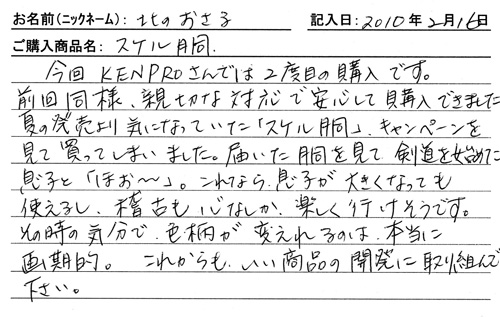 お名前(ニックネーム): 北のおさる 記入日: 2010年2月16日
ご購入商品名: スケル胴.
今回 KENPROさんでは2度目の購入です。
前回同様、親切な対応で安心して購入できました
夏の発売より気になっていた「スケル胴」、キャンペーンを
見て買ってしまいました。届いた胴を見て剣道を始めた
息子と「ほお〜」。これなら息子が大きくなっても
使えるし、稽古も心なしか、楽しく行けそうです。
その時の気分で、色柄が変えれるのは、本当に
画期的。これからも、いい商品の開発に取り組んで
下さい。